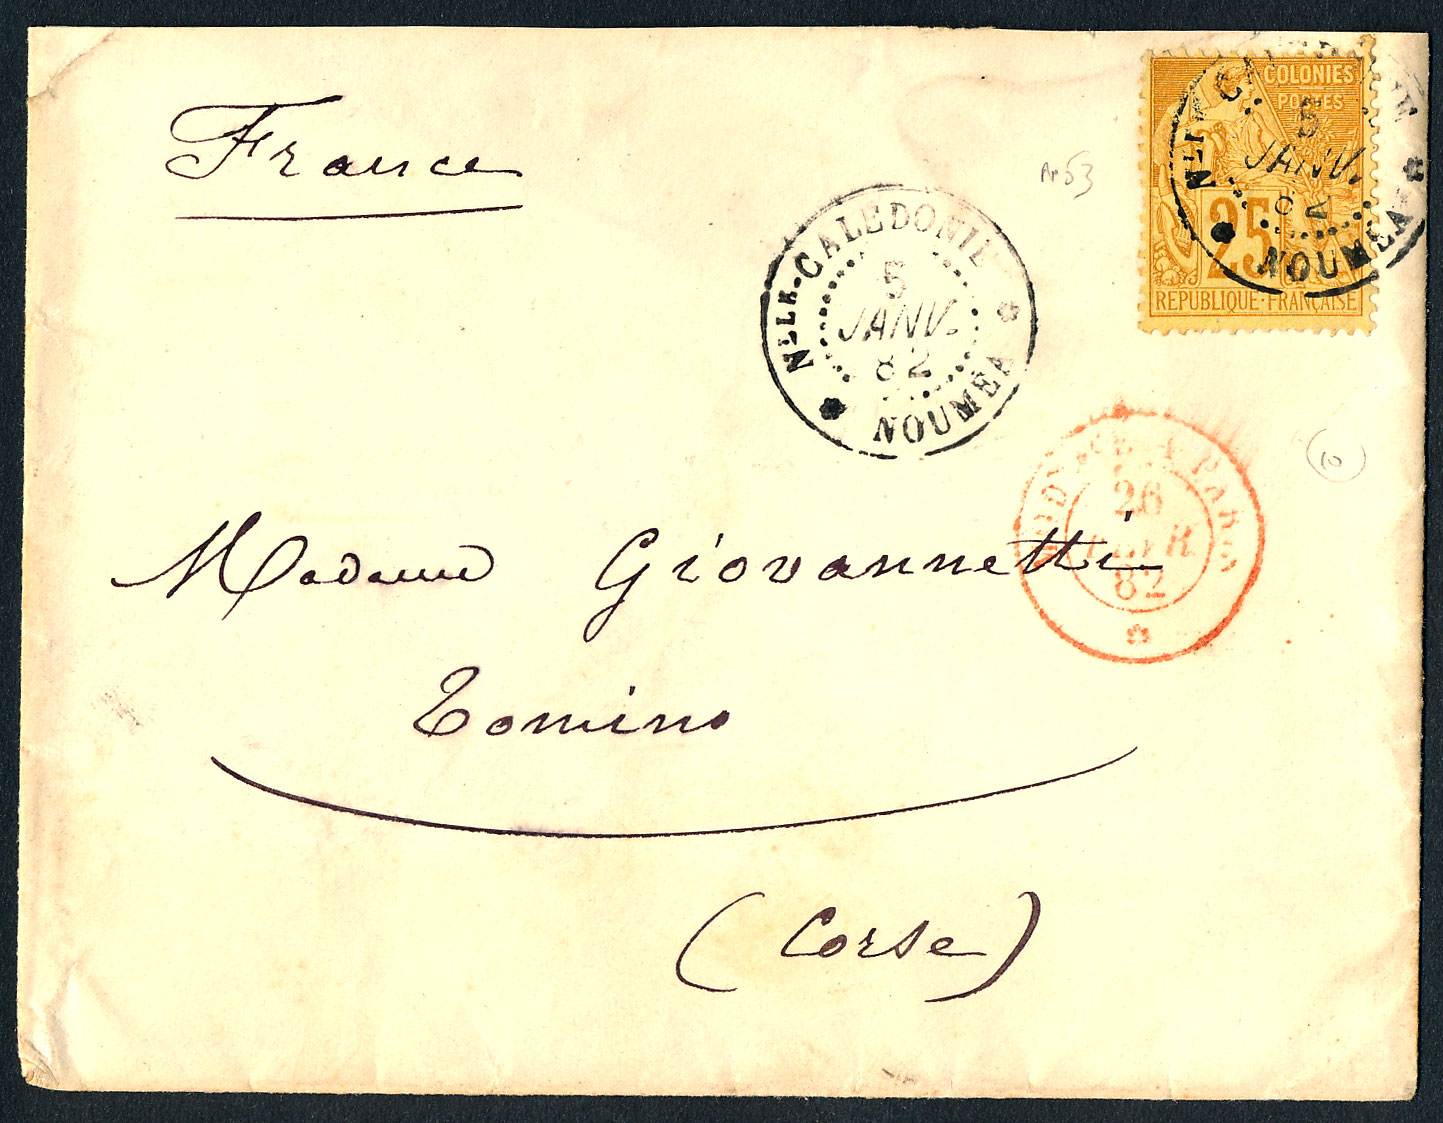 France
COLONIES
POSTES
25
REPUBLIQUE·FRANÇAISE
5
JANV.
82
NOUMEA
NLLE-CALEDONIE
5
JANV.
82
NOUMEA
A PARIS
26
FEVR
82
Madame Giovannetti
Tomino
(Corse)